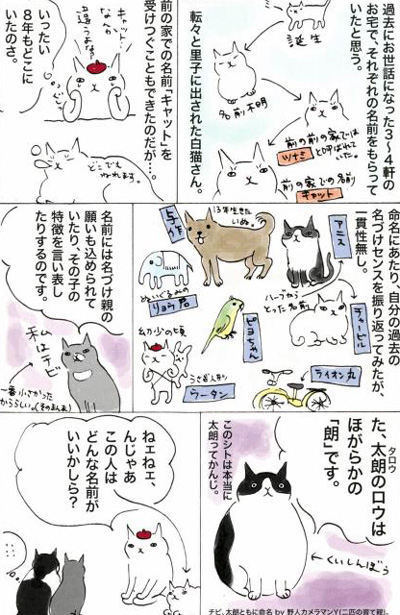 過去にお世話になった3〜4軒の
お宅で、それぞれの名前をもらって
いたと思う。
誕生
名前不明
前の前の家では
ツナミ
と呼ばれていた。
前の家での名前
キャット
転々と里子に出された白猫さん。
前の家での名前「キャット」を
受けつぐこともできたのだが…。
キャット…
なんか
違うよな…
いったい
8年もどこに
いたのさ。
どこでも
ねれます。
命名にあたり、自分の過去の
名づけセンスを振り返ってみたが、
一貫性無し。
アニス
ハーブから
とった名前
チャービル
ライオン丸
13年生きた
いぬ。
与作
ぬいぐるみの
リョウ君
ピヨちゃん
幼少の頃
うさぎ人形
ウータン
名前には名づけ親の
願いも込められて
いたり、その子の
特徴を言い表し
たりするのです。
私は
チビ
一番小さかった
からららしい。(そのまんま)
た、太朗のロウは
タロウ
ほがらかの
「朗」です。
このシトは本当に
太朗ってかんじ。
くいしんぼう
ねェねェ、
んじゃあ
この人は
どんな名前が
いいかしら?
チビ、太朗ともに命名 by 野人カメラマンY(二匹の育て親)。